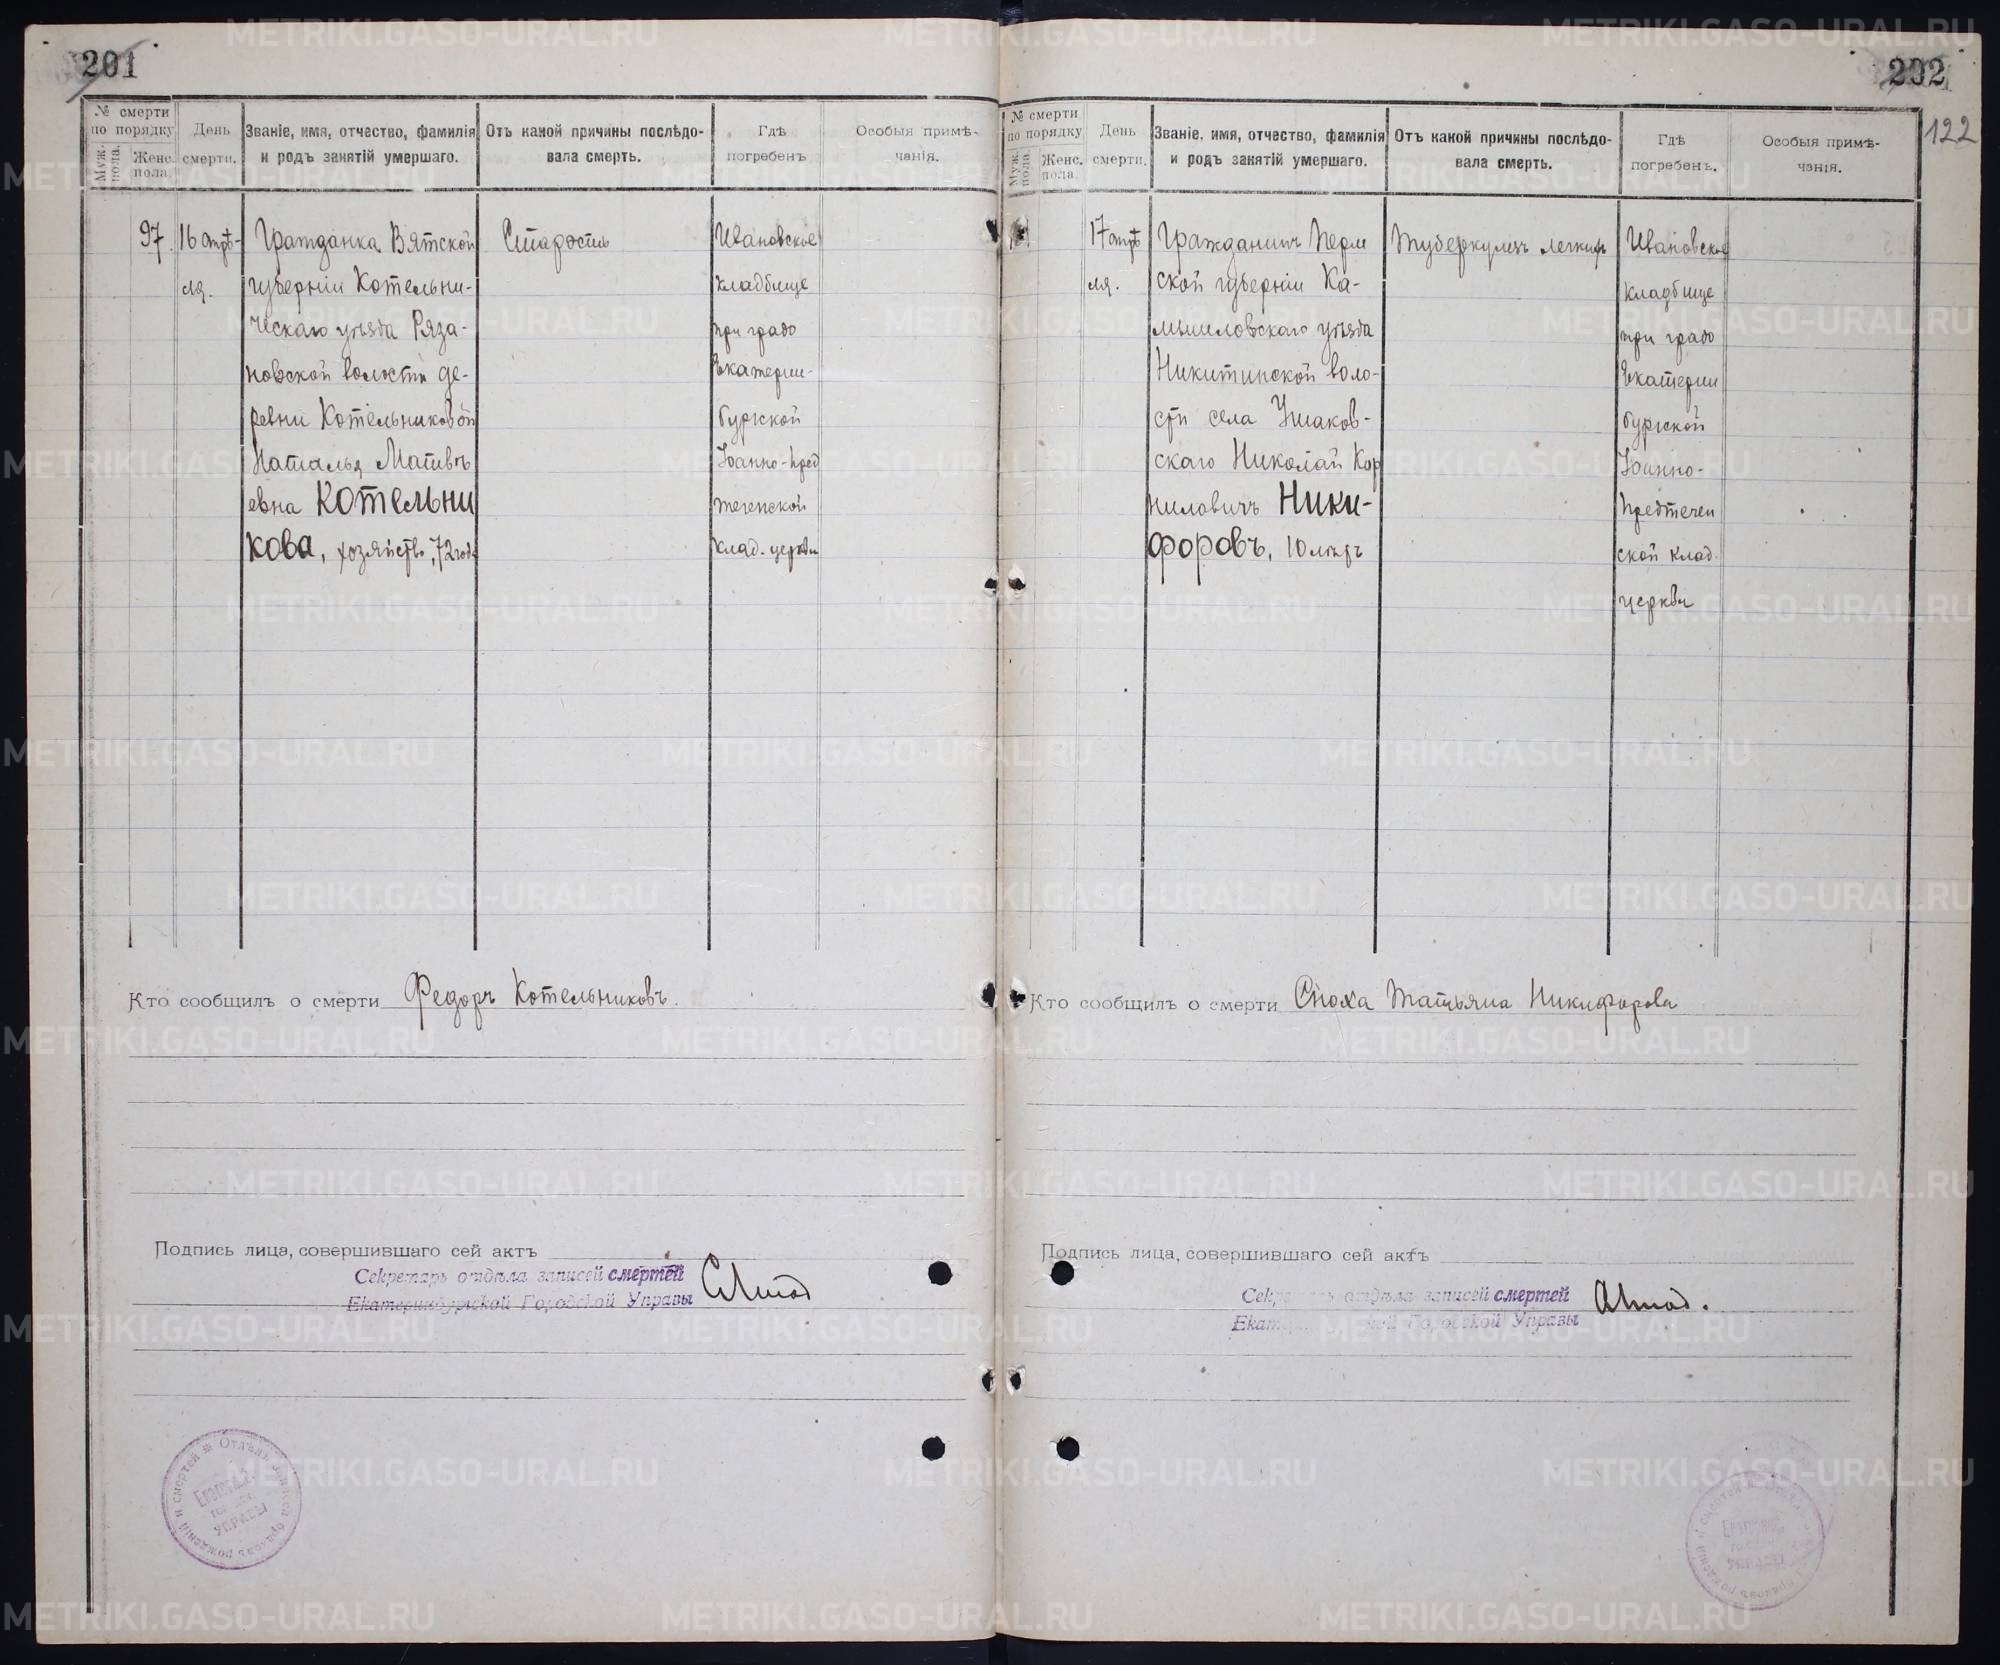 201
№ смерти по порядку
Муж. пола.
Женс. пола.
День смерти.
Званіе, имя, отчество, фамилія и родъ занятій умершаго.
Отъ какой причины послѣдовала смерть.
Гдѣ погребенъ
Особыя примѣчанія.
97.
16 апрѣ-
ля.
Гражданка Вятской
губерніи Котельни-
ческаго уѣзда Ряза-
новской волости де-
ревни Котельниковой
Наталья Матвѣ
евна Котельни
кова, хозяйство, 72 год.
Старость
Ивановское
кладбище
при градо
Екатерин-
бургской
Іоанно-Пред
теченской
клад. церкви
Кто сообщилъ о смерти Федоръ Котельниковъ.
Подпись лица, совершившаго сей актъ
Секретарь отдѣла записей смертей
Екатеринбургской Городской Управы
202
122
№ смерти по порядку
Муж. пола
Женс. пола.
День смерти.
Званіе, имя, отчество, фамилія и родъ занятій умершаго.
Отъ какой причины послѣдовала смерть.
Гдѣ погребенъ.
Особыя примѣчанія.
17 апрѣ
ля.
Гражданинъ Перм
ской губерніи Ка-
мышловскаго уѣзда
Никитинской воло-
сти села Ушаков-
скаго Николай Кор
ниловичъ Ники-
форовъ, 10 лѣтъ
Туберкулезъ легкихъ
Ивановское
кладбище
при градо
Екатерин
бургской
Іоанно-
Предтечен
ской клад.
церкви
Кто сообщилъ о смерти Сноха Татьяна Никифорова
Подпись лица, совершившаго сей актъ
Секретарь отдѣла записей смертей
Екатеринбургской Городской Управы
METRIKI.GASO-URAL.RU